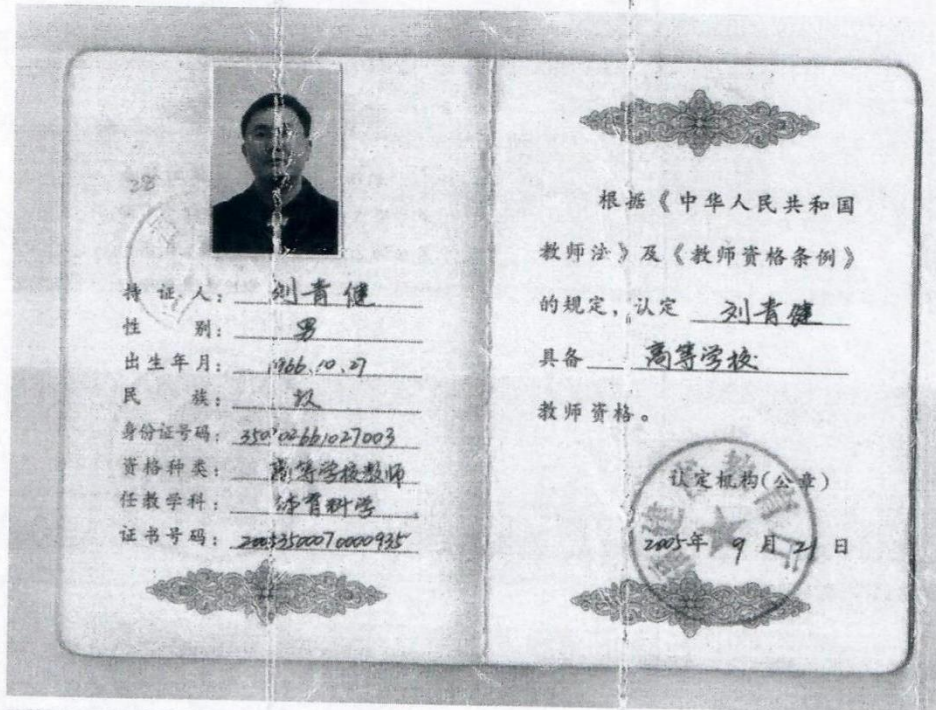 38
持证人：刘青健
性别：男
出生年月：1966.10.27
民族：汉
身份证号码：350702661027003
资格种类：高等学校教师
任教学科：体育科学
证书号码：20053500070000935
根据《中华人民共和国
教师法》及《教师资格条例》
的规定，认定 刘青健
具备 高等学校
教师资格。
认定机构(公章)
2005年 9 月 21 日
福建省教育厅